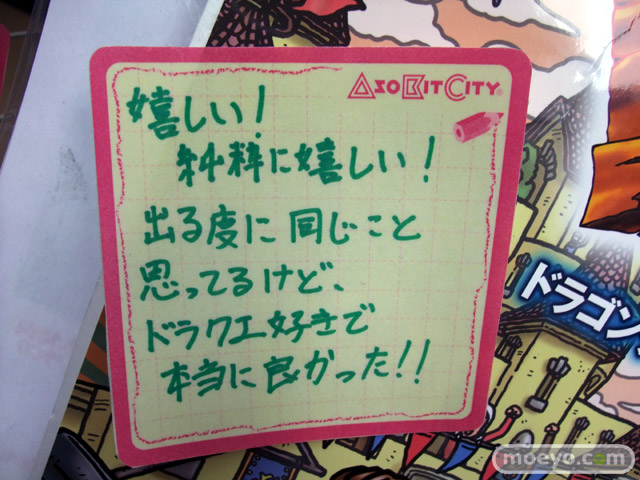 ASOBITCITY
嬉しい!
純粋に嬉しい!
出る度に同じこと
思ってるけど、
ドラクエ好きで
本当に良かった!!
ドラゴン
moeyo.com